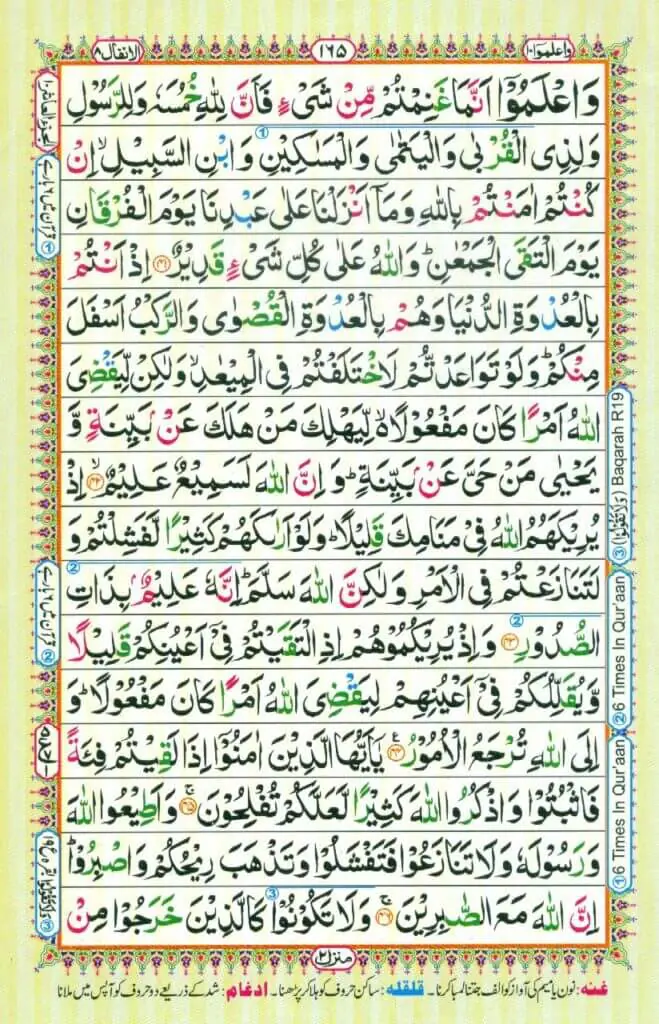 واعلموا١٠ ١٦٥ الانفال٨
وَاعۡلَمُوۡۤا اَنَّمَا غَنِمۡتُمۡ مِّنۡ شَىۡءٍ فَاَنَّ لِلّٰهِ خُمُسَهٗ وَلِلرَّسُوۡلِ
وَلِذِى الۡقُرۡبٰى وَالۡيَتٰمٰى وَالۡمَسٰكِيۡنِ وَابۡنِ السَّبِيۡلِ ۙ اِنۡ
كُنۡتُمۡ اٰمَنۡتُمۡ بِاللّٰهِ وَمَاۤ اَنۡزَلۡنَا عَلٰى عَبۡدِنَا يَوۡمَ الۡفُرۡقَانِ
يَوۡمَ الۡتَقَى الۡجَمۡعٰنِ ؕ وَاللّٰهُ عَلٰى كُلِّ شَىۡءٍ قَدِيۡرٌ ﴿۴۱﴾ اِذۡ اَنۡتُمۡ
بِالۡعُدۡوَةِ الدُّنۡيَا وَهُمۡ بِالۡعُدۡوَةِ الۡقُصۡوٰى وَالرَّكۡبُ اَسۡفَلَ
مِنۡكُمۡ ؕ وَلَوۡ تَوَاعَدْتُّمۡ لَاخۡتَلَفۡتُمۡ فِى الۡمِيۡعٰدِ ۙ وَلٰكِنۡ لِّيَقۡضِىَ
اللّٰهُ اَمۡرًا كَانَ مَفۡعُوۡلًا ۙ لِّيَهۡلِكَ مَنۡ هَلَكَ عَنۡۢ بَيِّنَةٍ وَّ
يَحۡيٰى مَنۡ حَىَّ عَنۡۢ بَيِّنَةٍ ؕ وَاِنَّ اللّٰهَ لَسَمِيۡعٌ عَلِيۡمٌ ۙ ﴿۴۲﴾ اِذۡ
يُرِيۡكَهُمُ اللّٰهُ فِىۡ مَنَامِكَ قَلِيۡلًا ؕ وَلَوۡ اَرٰٮكَهُمۡ كَثِيۡرًا لَّفَشِلۡتُمۡ وَ
لَتَنَازَعۡتُمۡ فِى الۡاَمۡرِ وَلٰكِنَّ اللّٰهَ سَلَّمَ ؕ اِنَّهٗ عَلِيۡمٌۢ بِذَاتِ
الصُّدُوۡرِ ﴿۴۳﴾ وَاِذۡ يُرِيۡكُمُوۡهُمۡ اِذِ الۡتَقَيۡتُمۡ فِىۡۤ اَعۡيُنِكُمۡ قَلِيۡلًا
وَّيُقَلِّلُكُمۡ فِىۡۤ اَعۡيُنِهِمۡ لِيَقۡضِىَ اللّٰهُ اَمۡرًا كَانَ مَفۡعُوۡلًا ؕ وَ
اِلَى اللّٰهِ تُرۡجَعُ الۡاُمُوۡرُ ﴿۴۴﴾ يٰۤاَيُّهَا الَّذِيۡنَ اٰمَنُوۡۤا اِذَا لَقِيۡتُمۡ فِئَةً
فَاثۡبُتُوۡا وَاذۡكُرُوا اللّٰهَ كَثِيۡرًا لَّعَلَّكُمۡ تُفۡلِحُوۡنَ ۚ ﴿۴۵﴾ وَاَطِيۡعُوا اللّٰهَ
وَرَسُوۡلَهٗ وَلَا تَنَازَعُوۡا فَتَفۡشَلُوۡا وَتَذۡهَبَ رِيۡحُكُمۡ وَاصۡبِرُوۡا ؕ
اِنَّ اللّٰهَ مَعَ الصّٰبِرِيۡنَ ۚ ﴿۴۶﴾ وَلَا تَكُوۡنُوۡا كَالَّذِيۡنَ خَرَجُوۡا مِنۡ
③ (وَلَا تَقُوْلُوْا) Baqarah R19
② 6 Times In Qur'aan
① 6 Times In Qur'aan
الجزو العاشر١٠
① قرآن میں ۶ بار ہے
② قرآن میں ۶ بار ہے
منزل٢
غنہ : نون یا میم کی آواز کو الف جتنا لمبا کرنا۔ قلقلہ : ساکن حروف کو ہلا کر پڑھنا۔ ادغام : شد کے ذریعے دو حروف کو آپس میں ملانا